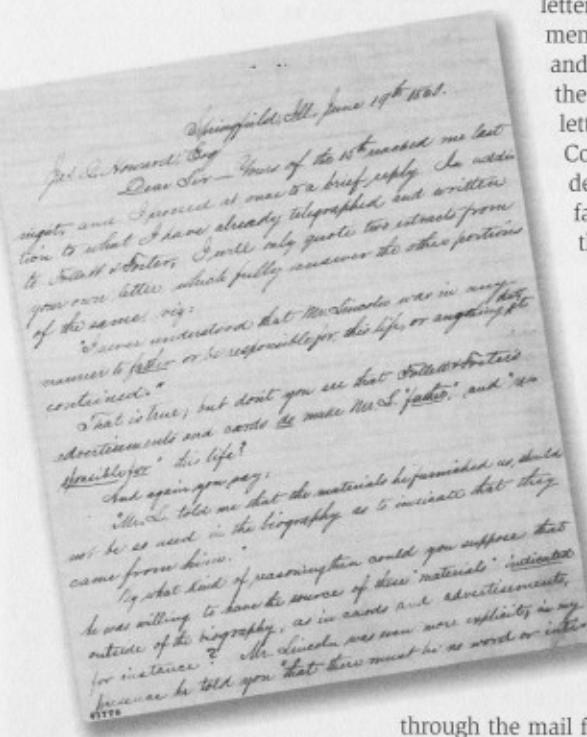 Springfield, Ill. June 19th 1860.
Jas. Q. Howard, Esq
Dear Sir— Yours of the 15th reached me last
night, and I proceed at once to a brief reply. In addi
tion to what I have already telegraphed and written
to Follett & Foster, I will only quote two extracts from
your own letter which fully answer the other portions
of the same, viz:
"I never understood that Mr. Lincoln was in any
manner to father or be responsible for, this life, or anything it
contained."
That is true; but don't you see that Follett & Foster's
advertisements and cards do make Mr. L. "father," and "re
sponsible for" this life?
And again you say:
"Mr. L. told me that the materials he furnished us, should
not be so used in the biography as to indicate that they
came from him."
By what kind of reasoning then could you suppose that
he was willing to have the source of these "materials" indicated
outside of the biography, as in cards and advertisements,
for instance? Mr. Lincoln was even more explicit; in my
presence he told you "that there must be no word or
letter
men
and
the
lett
Co
de
fa
th
through the mail f